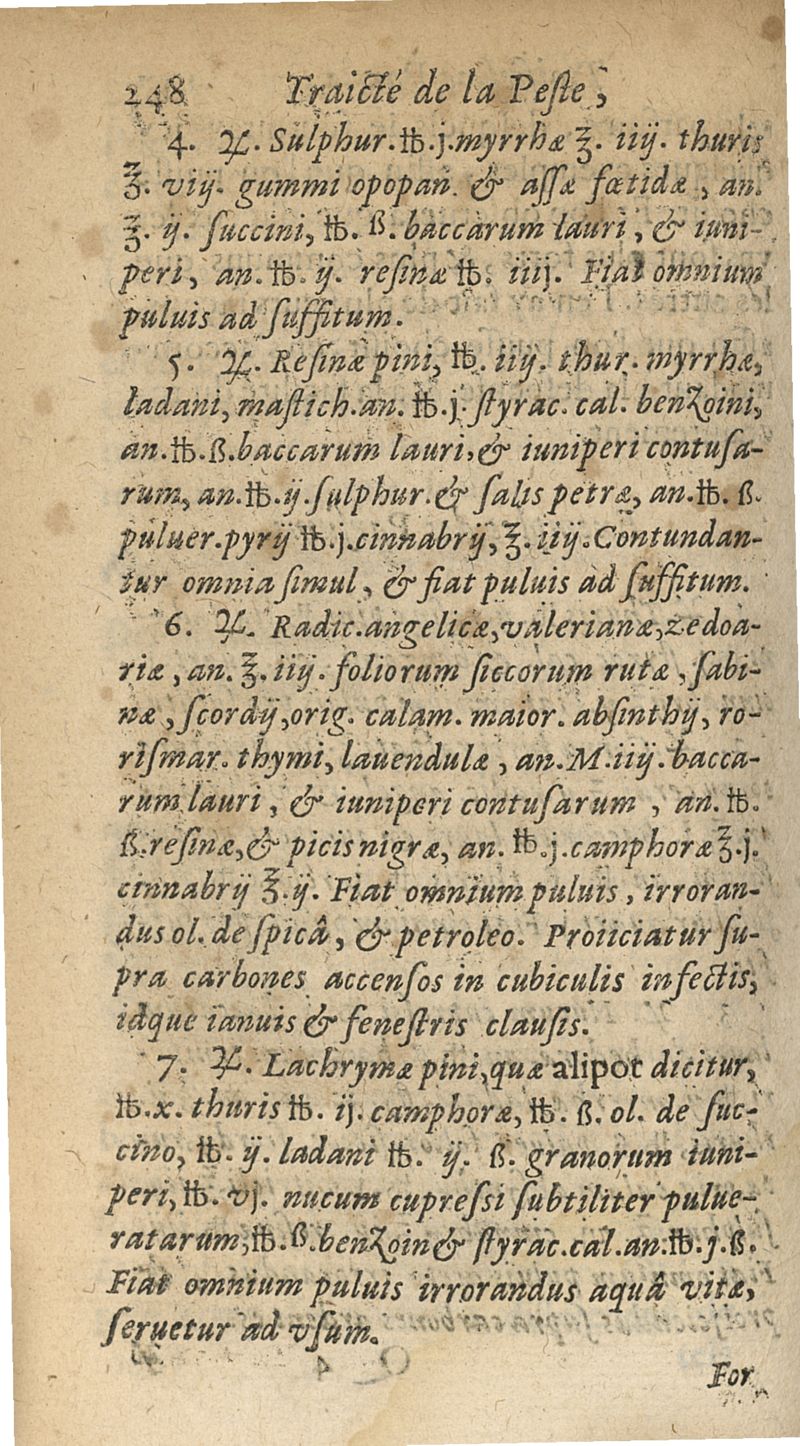 248 Traicté de la Peste,
4. ℞. Sulphur. ℔. j. myrrhæ ℥. iiij. thuris
℥. viij. gummi opopan. & assæ fœtidæ, an.
℥. ij. succini, ℔. ß. baccarum lauri, & iuni-
peri, an. ℔. ij. resinæ ℔. iiij. Fiat omnium
puluis ad suffitum.
5. ℞. Resinæ pini, ℔. iiij. thur. myrrhæ,
ladani, mastich. an. ℔. j. styrac. cal. benzoini,
an. ℔. ß. baccarum lauri, & iuniperi contusa-
rum, an. ℔. ij. sulphur. & salis petræ, an. ℔. ß.
puluer. pyrij ℔. j. cinnabrij, ℥. iiij. Contundan-
tur omnia simul, & fiat puluis ad suffitum.
6. ℞. Radic. angelicæ, valerianæ, zedoa-
riæ, an. ℥. iiij. foliorum siccorum rutæ, sabi-
næ, scordij, orig. calam. maior. absinthij, ro-
rismar. thymi, lauendulæ, an. M. iiij. bacca-
rum lauri, & iuniperi contusarum, an. ℔.
ß. resinæ, & picis nigræ, an. ℔. j. camphoræ ℥. j.
cinnabrij ℥. ij. Fiat omnium puluis, irroran-
dus ol. de spicâ, & petroleo. Proiiciatur su-
pra carbones accensos in cubiculis infectis,
idque ianuis & fenestris clausis.
7. ℞. Lachrymæ pini, quæ alipot dicitur,
℔. x. thuris ℔. ij. camphoræ, ℔. ß. ol. de suc-
cino, ℔. ij. ladani ℔. ij. ß. granorum iuni-
peri, ℔. vj. nucum cupressi subtiliter pulue-
ratarum, ℔. ß. benzoin & styrac. cal. an. ℔. j. ß.
Fiat omnium puluis irrorandus aquâ vitæ,
seruetur ad vsum.
For